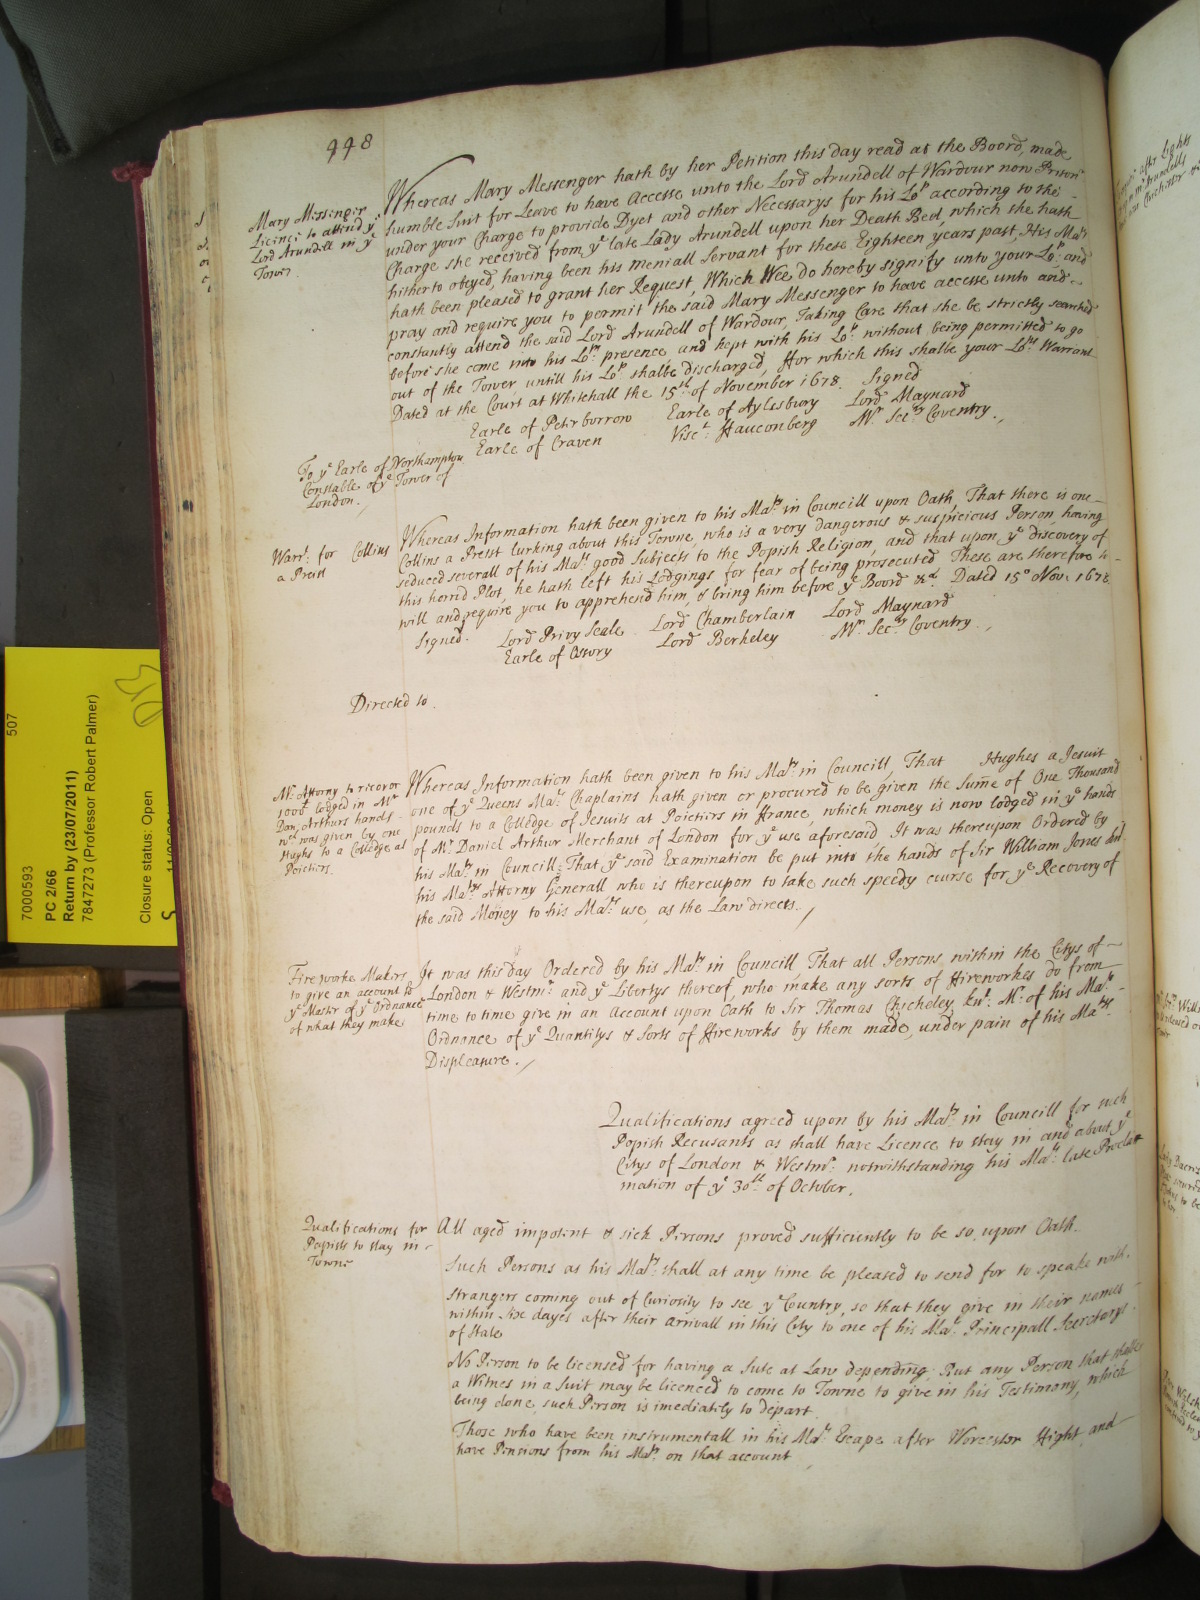 448
Mary Messenger
Licence to attend ye
Lord Arundell in ye
Tower.
Whereas Mary Messenger hath by her Petition this day read at the Boord, made
humble Suit for Leave to have Accesse unto the Lord Arundell of Wardour now Prisonr
under your Charge to provide Dyet and other Necessarys for his Lop according to the
Charge she received from ye late Lady Arundell upon her Death Bed, which she hath
hitherto obeyed, having been his meniall Servant for these Eighteen years past, His Maty
hath been pleased to grant her Request, Which Wee do hereby signify unto your Lop: and
pray and require you to permit the said Mary Messenger to have accesse unto and
constantly attend the said Lord Arundell of Wardour, Taking Care that she be strictly searched
before she come into his Lops presence, and kept with his Lop without being permitted to go
out of the Tower untill his Lop shalbe discharged, ffor which this shalbe your Lops Warrant
Dated at the Court at Whitehall the 15th of November 1678. Signed
Earle of Peterborrow Earle of Aylesbury Lord Maynard
Earle of Craven Visct: ffauconberg Mr. Secry Coventry.
To ye Earle of Northampton
Constable of ye Tower of
London.
Warrt. for Collins
a Preist
Whereas Information hath been given to his Maty in Councill upon Oath, That there is one
Collins a Preist lurking about this Towne, who is a very dangerous & suspicious Person, having
seduced severall of his Mats good Subjects to the Popish Religion, and that upon ye discovery of
this horrid Plot, he hath left his Lodgings for fear of being prosecuted These are therefore to
will and require you to apprehend him, & bring him before ye Boord &c. Dated 15o Nov: 1678
Signed. Lord Privy Seale Lord Chamberlain Lord Maynard
Earle of Ossory Lord Berkeley Mr. Secry Coventry.
Directed to
Mr. Attorny to recover
1000l lodged in Mr
Dan: Arthurs hands
wch was given by one
Hughs to a Colledge at
Poictiers.
Whereas Information hath been given to his Maty in Councill, That Hughes a Jesuit
one of ye Queens Mats Chaplains hath given or procured to be given the Sume of One Thousand
pounds to a Colledge of Jesuits at Poictiers in ffrance, which money is now lodged in ye hands
of Mr Daniel Arthur Merchant of London for ye use aforesaid, It was thereupon Ordered by
his Maty in Councill; That ye said Examination be put into the hands of Sir William Jones knt.
his Mats Attorny Generall who is thereupon to take such speedy course for ye Recovery of
the said Money to his Mats use, as the Law directs.
Fireworke Makers
to give an account to
ye Master of ye Ordnance
of what they make
It was this day Ordered by his Maty in Councill That all Persons within the Citys of
London & Westmr and ye Libertys thereof, who make any sorts of ffireworkes do from
time to time give in an Account upon Oath to Sir Thomas Chicheley knt. Mr. of his Mats
Ordnance of ye Quantitys & sorts of ffireworks by them made, under pain of his Mats
Displeasure.
Qualifications agreed upon by his Maty in Councill for such
Popish Recusants as shall have Licence to stay in and about ye
Citys of London & Westmr: notwithstanding his Mats late Procla-
mation of ye 30th of October.
Qualifications for
Papists to stay in
Towne
All aged impotent & sick Persons proved sufficiently to be so, upon Oath.
Such Persons as his Maty shall at any time be pleased to send for to speake with.
Strangers coming out of Curiosity to see ye Country, so that they give in their names
within dayes after their arrivall in this City to one of his Mats Principall Secretarys
of State
No Person to be licensed for having a Sute at Law depending, But any Person that shalbe
a Witnes in a Suit may be licenced to come to Towne to give in his Testimony, which
being done, such Person is imediatly to depart
Those who have been instrumentall in his Mats Escape after Worcester ffight and
have Pensions from his Maty on that account
507
7000593
PC 2/66
Return by (23/07/2011)
7847273 (Professor Robert Palmer)
Closure status: Open